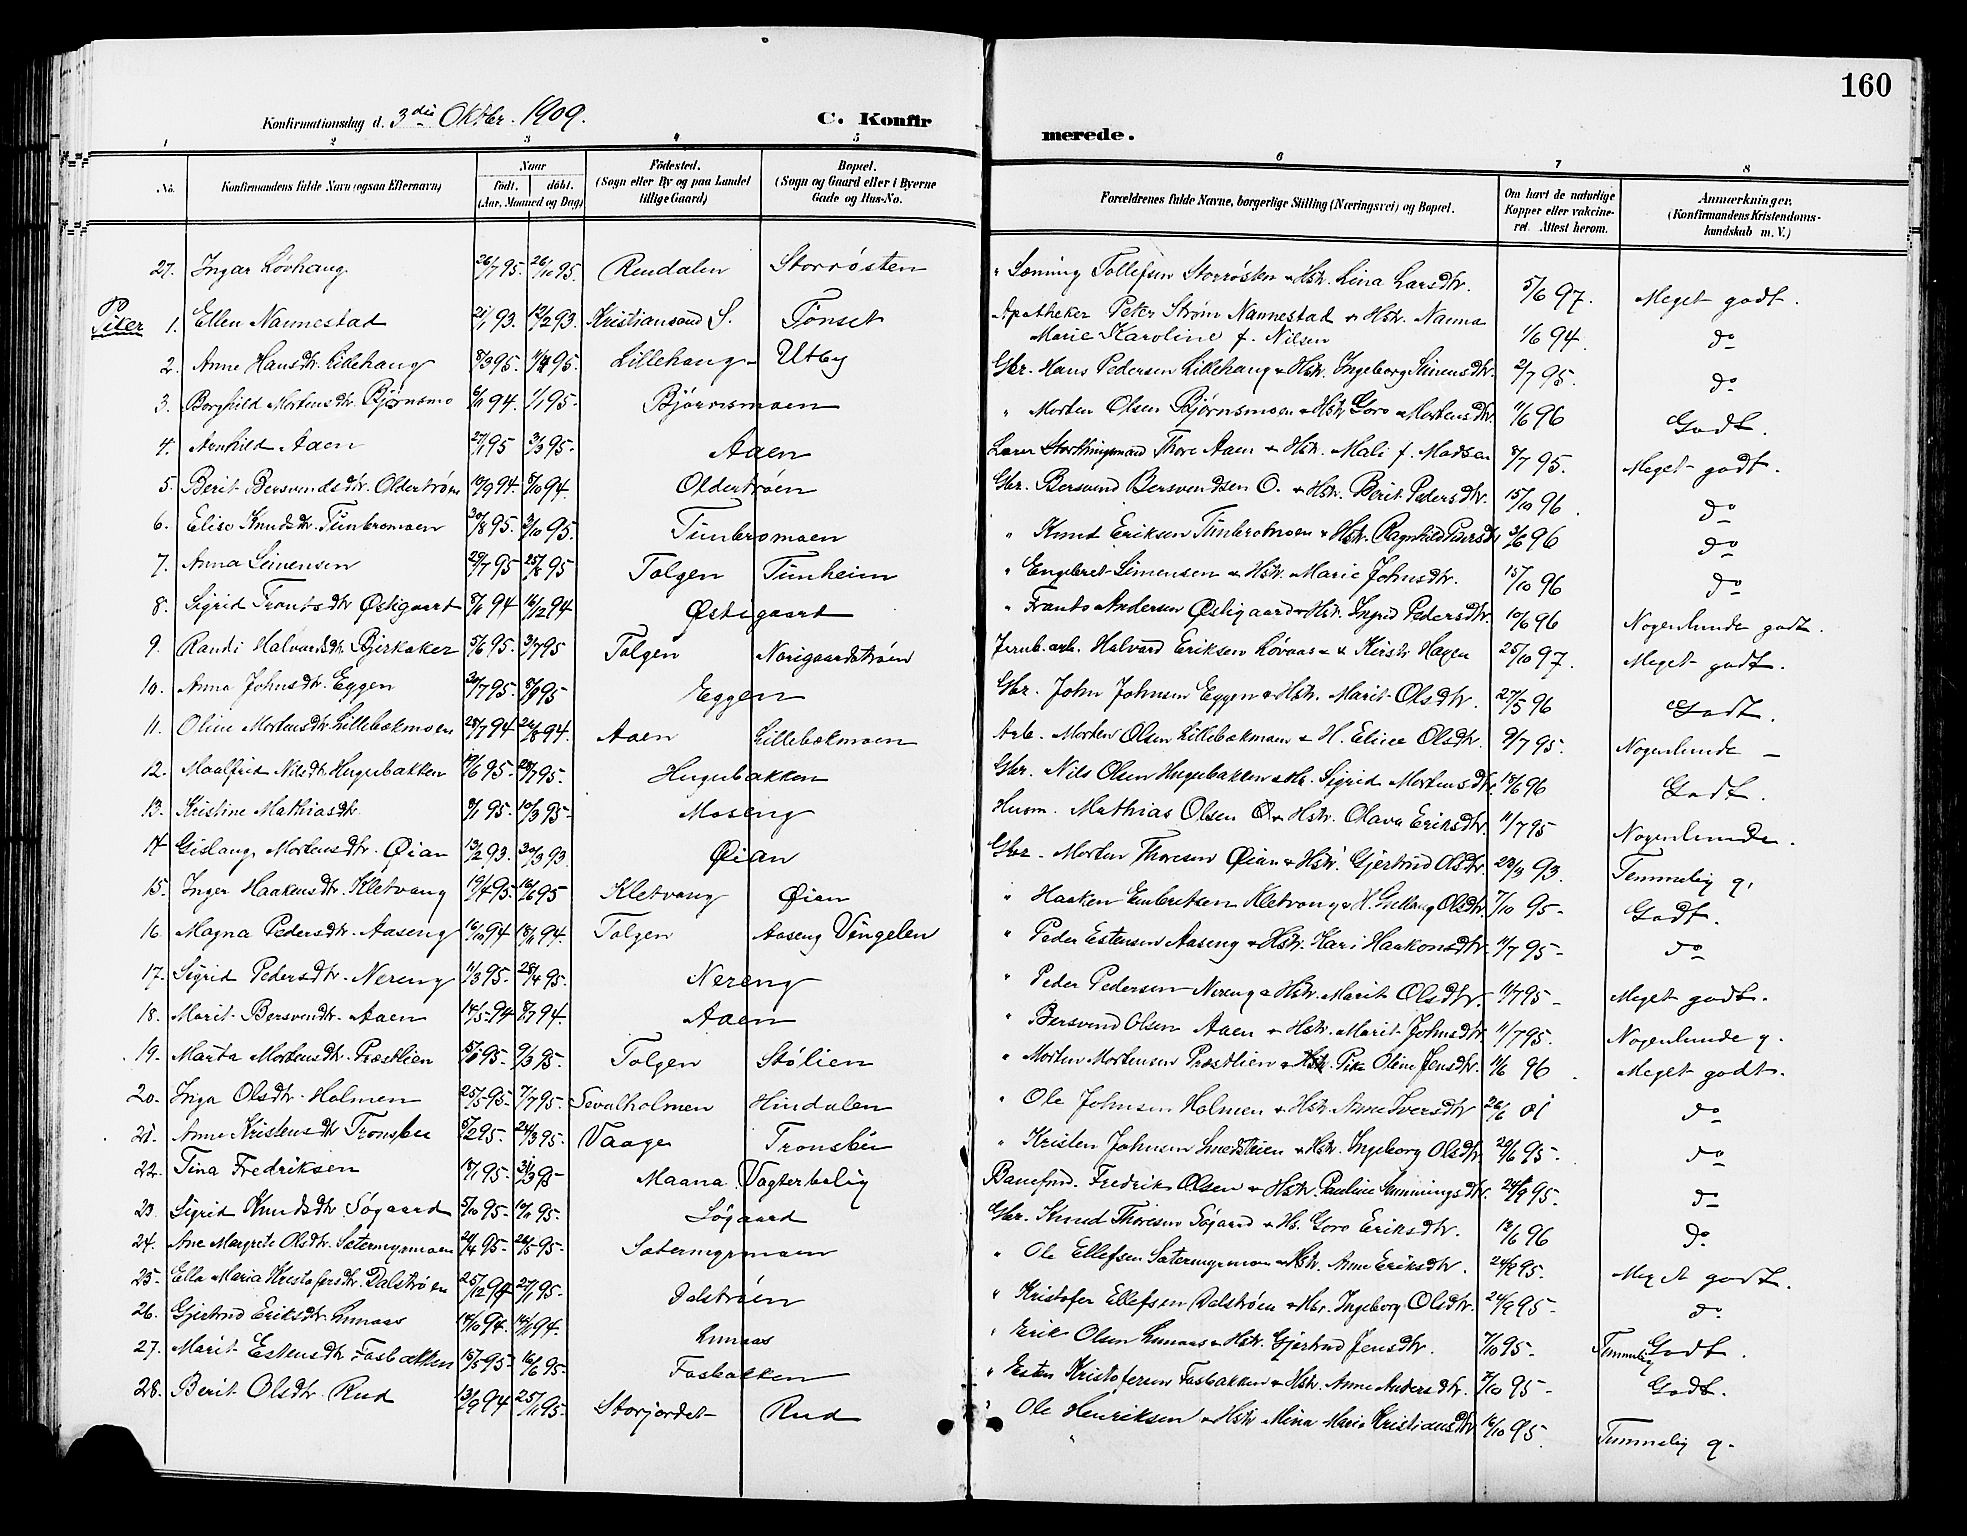 160
Konfirmationsdag d. 3die Oktbr. 1909.
C. Konfirmerede.
1 2 3 4 5 6 7 8
No. | Konfirmandens fulde Navn (ogsaa Efternavn) | Naar født. døbt. (Aar, Maaned og Dag) | Fødested. (Sogn eller By og paa Landet tillige Gaard) | Bopæl. (Sogn og Gaard eller i Byerne Gade og Hus-No. | Forældrenes fulde Navne, borgerlige Stilling (Næringsvei) og Bopæl. | Om havt de naturlige Kopper eller vakcineret. Attest herom. | Anmærkninger. (Konfirmandens Kristendomskundskab m. V.)
27. Ingar Lövhaug 26/7 95. 26/10 95. Rendalen Storrøsten " Sæming Tollefsen Storrøsten & Hstr. Lina Larsdtr. 5/6 97. Meget godt.
Piker
1. Ellen Nannestad 21/1 93. 12/2 93. Kristiansand S. Tønset Apotheker Peter Strøm Nannestad & Hstr. Nanna Marie Karoline f. Nilsen 1/6 94. do
2. Anne Hansdtr. Lillehaug 8/3 95. 95. Lillehaug Utby Gbr. Hans Pedersen Lillehaug & Hstr. Ingeborg Simensdtr. 2/7 95. do
3. Borghild Mortensdtr. Bjørnsmo 94. 1/1 95. Bjørnsmoen " Morten Olsen Bjørnsmoen & Hstr Goro Mortensdtr. 11/6 96 Godt.
4. Arnhild Aaen 27/1 95 31/3 95. Aaen Lærer Storthingsmand Thore Aaen & Hstr. Mali f. Madsen 8/7 95. Meget godt.
5. Berit Bersvendsdtr. Oldertrøen 19/9 94. 8/10 94. Oldertrøen Gbr. Bersvend Bersvendsen O. & Hstr. Berit Pedersdtr. 15/10 96. do
6. Elise Knudsdtr. Tunbromoen 30/8 95. 3/10 95. Tunbromoen " Knud Eriksen Tunbromoen & Hstr. Ragnhild Pedersdt. 3/6 96 do
7. Anna Simensen 29/7 95 25/8 95 Tolgen Tunheim " Engebret Simensen & Hstr. Marie Johnsdtr. 15/10 96 do
8. Sigrid Trontsdtr Østigaard 8/11 94 16/12 94 Østigaard " Tronts Andersen Østigaard & Hstr. Ingrid Pedersdtr. 10/6 96 Nogenlunde godt.
9. Randi Halvardsdtr. Birkaker 5/6 95. 31/7 95 Tolgen Norigaardstrøen Jernb.arb. Halvard Eriksen Løvaas & Kirsti Hagen 25/10 97. Meget godt.
10. Anna Johnsdtr. Eggen 95. 95 Eggen Gbr. John Johnsen Eggen & Hstr. Marit Olsdtr. 27/5 96 Godt.
11. Oline Mortensdtr. Lillebækmoen 28/7 94 26/8 94. Aaen Lillebækmoen Arb. Morten Olsen Lillebækmoen & H. Eline Olsdtr. 9/7 95. Nogenlunde –
12. Maalfrid Nilsdtr. Hugubakken 95. 28/7 95. Hugubakken Gbr. Nils Olsen Hugubakken & Hr. Sigrid Mortensdtr. 18/6 96 Godt.
13. Kristine Mathiasdtr 8/1 95. 10/3 95. Moseng Husm. Mathias Olsen Ø & Hstr. Olava Eriksdtr. 11/7 95 Nogenlunde.
14 Gislaug Mortensdtr. Øian 13/2 93. 30/3 93 Øian Gbr. Morten Thoresen Øian & Hstr. Gjertrud Olsdtr. 93. Temmelig g.
15. Inger Haakensdtr. Kletvang 19/4 95. 16/6 95 Kletvang Øian " Haaken Embretsen Kletvang & H. Gullaug Olsdtr. 7/10 95 – Godt.
16 Magna Pedersdtr. Aaseng 16/10 94 18/11 94. Tolgen Aaseng Vingelen " Peder Estensen Aaseng & Hstr. Kari Haakonsdtr. 11/7 95 – do
17. Sigrid Pedersdtr. Nereng 11/3 95. 28/4 95. Nereng " Peder Pedersen Nereng & Hstr. Marit Olsdtr. 11/7 95 – Meget godt.
18. Marit Bersvendtr. Aaen 14/5 94 8/7 94. Aaen " Bersvend Olsen Aaen & Hstr. Marit Johnsdtr. 11/7 95. Nogenlunde g.
19. Marta Mortensdtr. Præstlien 95. 9/3 95. Tolgen Stølien " Morten Mortensen Præstlien & Hstr. Oline Jensdtr. 11/6 96 Meget godt.
20. Inga Olsdtr. Holmen 25/5 95. 7/7 95. Sevalholmen Hindalen " Ole Johnsen Holmen & Hstr. Anne Iversdtr 01 do
21. Anne Kristensdtr Tronsbu 5/2 95. 24/3 95. Vaage Tronsbu " Kristen Johnsen & Hstr. Ingeborg Olsdtr 20/6 95. do
22. Tina Fredriksen 18/1 95. 31/3 95 – Maana Vogterbolig Banefmd. Fredrik Olsen & Hstr. Pauline Semmingsdtr. 24/9 95. do
23. Sigrid Knudsdtr. Søgaard 95. 95. Søgaard Gbr. Knud Thoresen Søgaard & Hs. Goro Eriksdtr. 18/6 96 do
24. Ane Margrete Olsdtr. Sætermyrmoen 21/4 95. 26/5 95. Sætermyrmoen " Ole Ellefsen Sætermyrmoen & Hstr. Anne Eriksdtr. 24/9 95. Meget godt.
25. Ella Maria Kristofersdtr. Dalstrøen 25/12 94 27/1 95. Dalstrøen " Kristofer Ellefsen Dalstrøen & Hr. Ingeborg Olsdtr. 24/9 95. do
26. Gjertrud Eriksdtr. Lunaas 94. 94. Lunaas " Erik Olsen Lunaas & Hstr. Gjertrud Jensdtr. 7/10 95. Temmelig Godt.
27. Marit Estensdtr. Fosbakken 15/5 95. 16/6 95. Fosbakken " Esten Kristofersen Fosbakken & Hstr. Anne Andersdtr. 7/10 95 – Godt.
28. Berit Olsdtr. Rud 13/9 94 25/11 95. Storjordet Rud " Ole Henriksen & Hstr Mina Marie Kristiansdtr 16/10 95. Temmelig g.